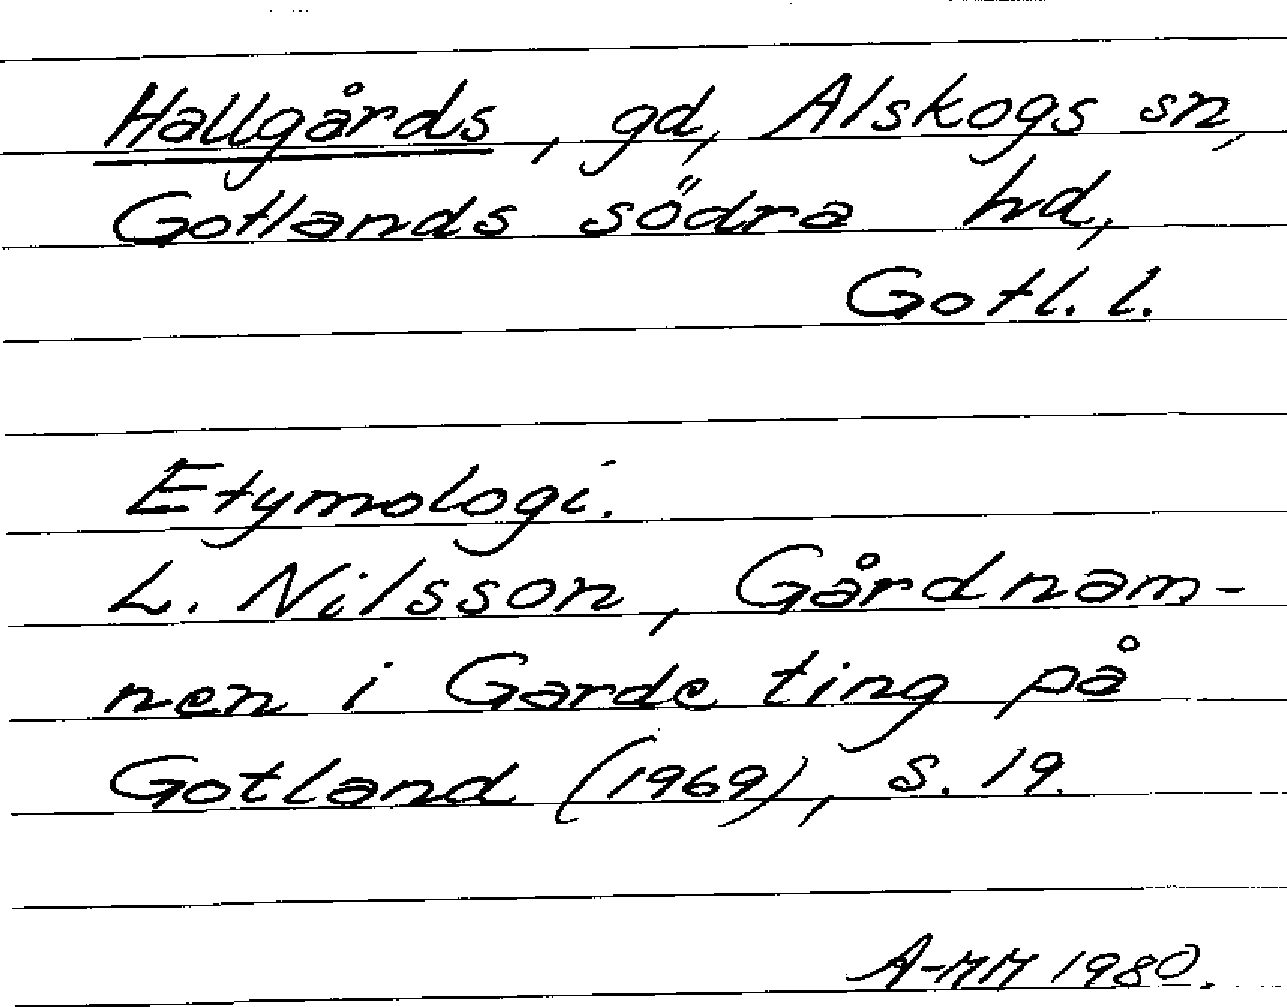 Hallgårds, gd, Alskogs sn,
Gotlands södra hd,
Gotl. l.
Etymologi.
L. Nilsson, Gårdnam-
nen i Garde ting på
Gotland (1969), s. 19.
A-MM 1980.